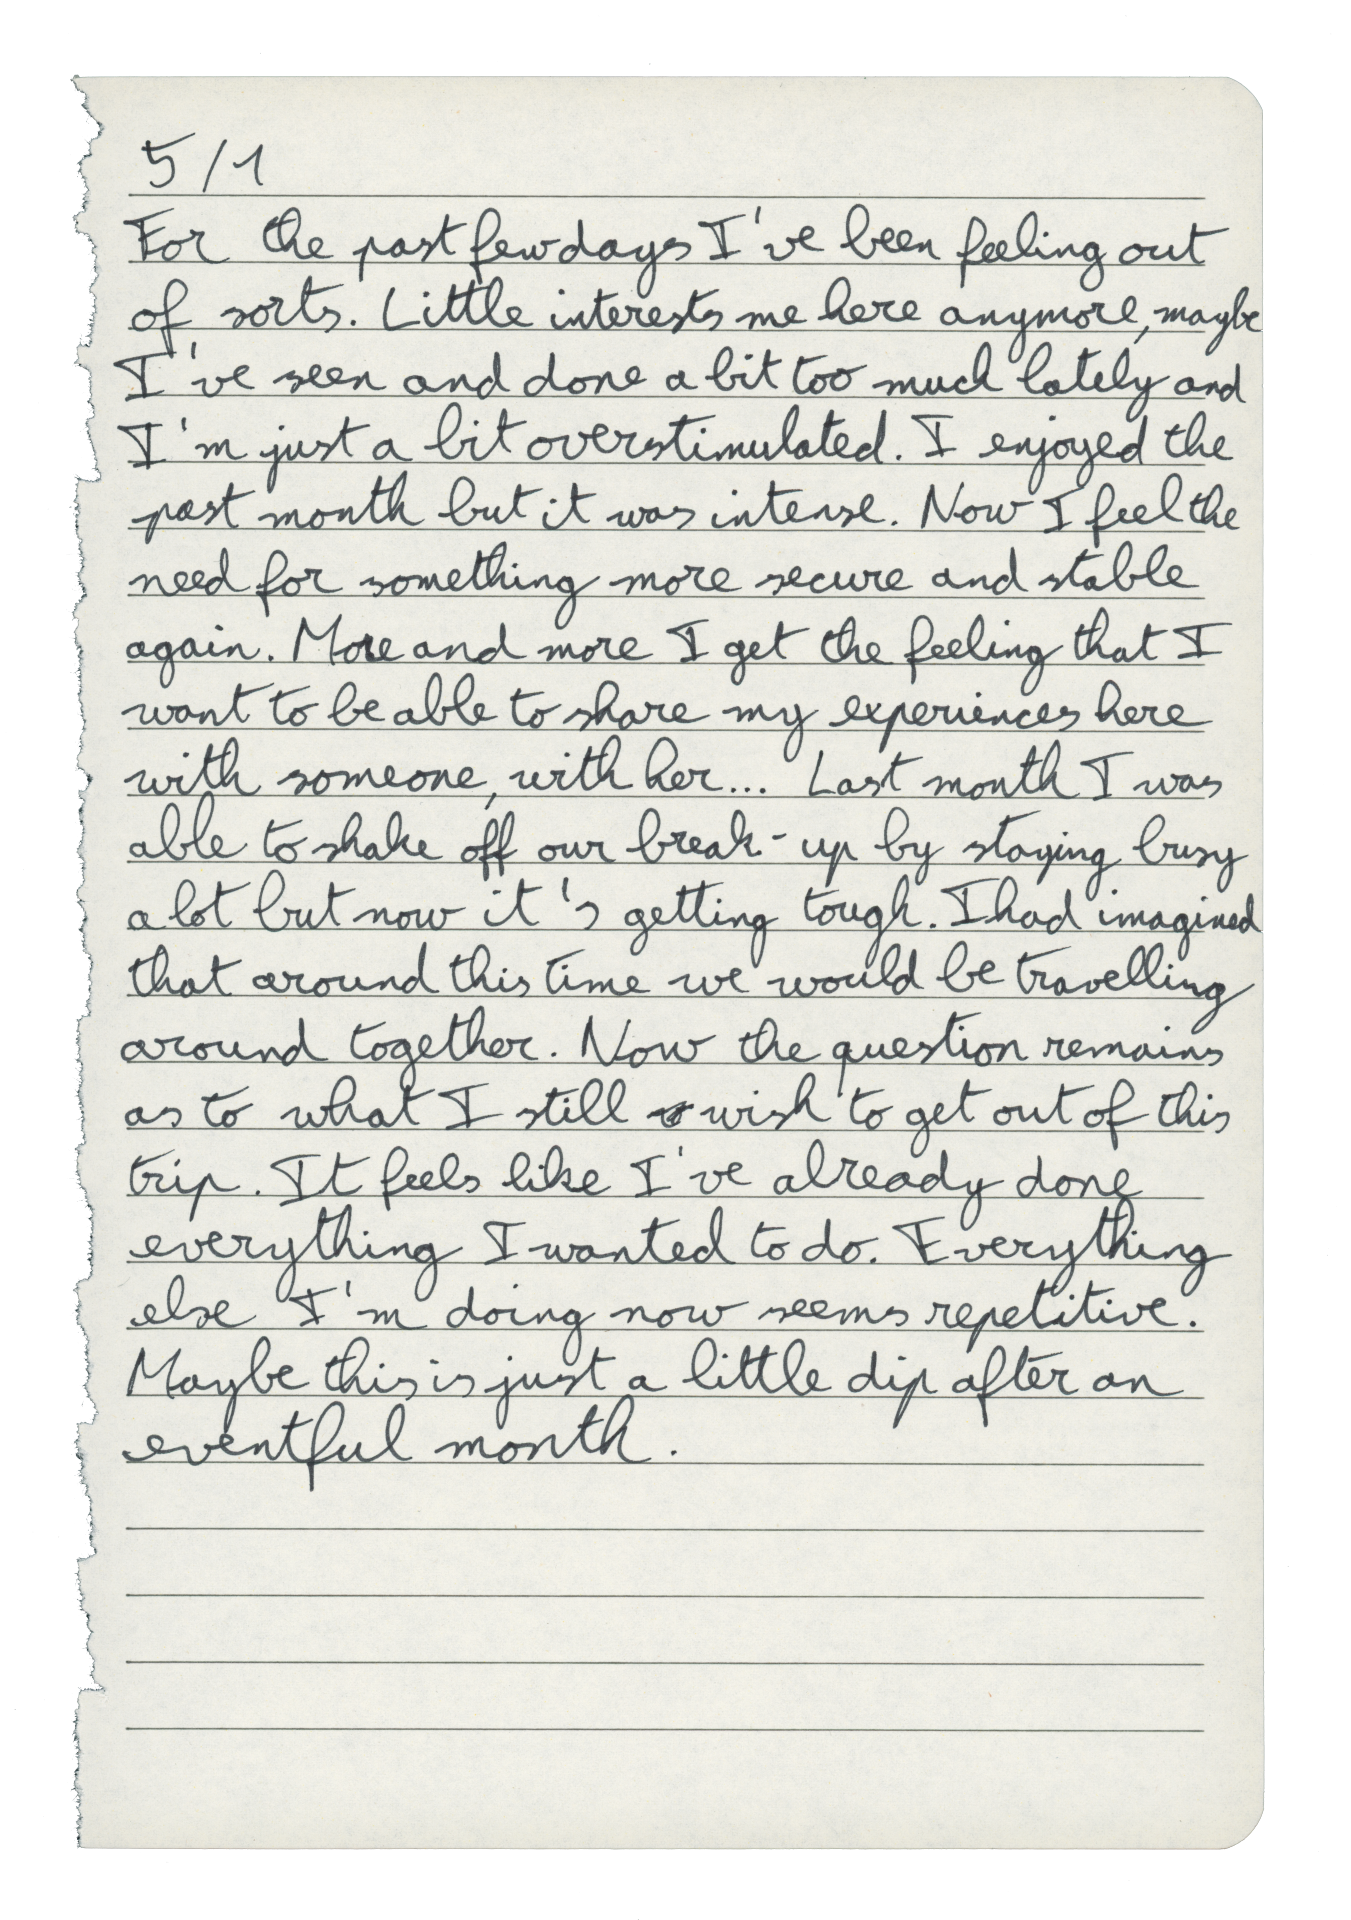 5/1
For the past few days I've been feeling out
of sorts. Little interests me here anymore, maybe
I've seen and done a bit too much lately and
I'm just a bit overstimulated. I enjoyed the
past month but it was intense. Now I feel the
need for something more secure and stable
again. More and more I get the feeling that I
want to be able to share my experiences here
with someone, with her... Last month I was
able to shake off our break-up by staying busy
a lot but now it's getting tough. I had imagined
that around this time we would be travelling
around together. Now the question remains
as to what I still wish to get out of this
trip. It feels like I've already done
everything I wanted to do. Everything
else I'm doing now seems repetitive.
Maybe this is just a little dip after an
eventful month.